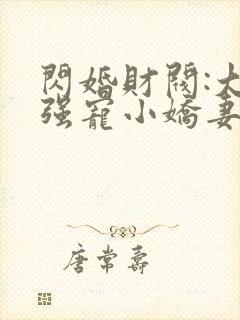 閃婚財閥:大
强寵小嬌妻
唐常壽